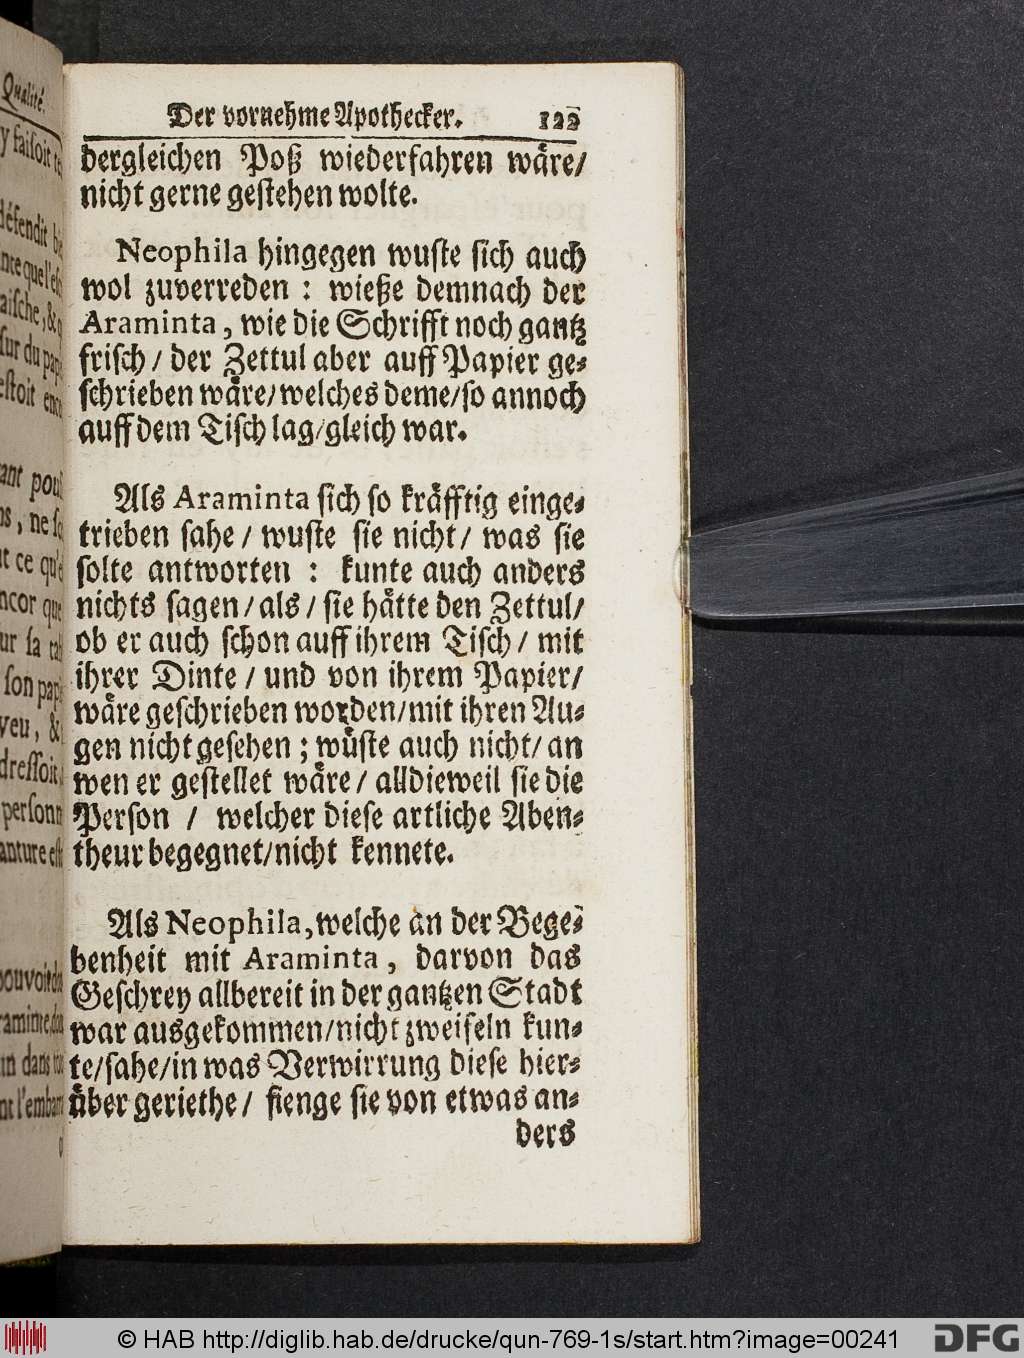 Qualité.
y faiſoit
défendit
nce que l'eſ
aiſche, &
ſur du pap
eſtoit enco
ant pouſ
ns, ne ſç
t ce qu'e
ncor que
ur ſa ta
ſon papi
veu, &
dreſſoit
perſonn
anture eſt
pouvoit
raminte
in dans
nt l'embar
Der vornehme Apothecker. 122
dergleichen Poß wiederfahren wäre/
nicht gerne geſtehen wolte.
Neophila hingegen wuſte ſich auch
wol zuverreden : wieße demnach der
Araminta, wie die Schrifft noch gantz
friſch / der Zettul aber auff Papier ge-
ſchrieben wäre/welches deme/ſo annoch
auff dem Tiſch lag/gleich war.
Als Araminta ſich ſo kräfftig einge-
trieben ſahe / wuſte ſie nicht/ was ſie
ſolte antworten : kunte auch anders
nichts ſagen/als/ ſie hätte den Zettul/
ob er auch ſchon auff ihrem Tiſch/ mit
ihrer Dinte / und von ihrem Papier/
wäre geſchrieben worden/mit ihren Au-
gen nicht geſehen ; wüſte auch nicht/ an
wen er geſtellet wäre/ alldieweil ſie die
Perſon / welcher dieſe artliche Aben-
theur begegnet/nicht kennete.
Als Neophila, welche an der Bege-
benheit mit Araminta, darvon das
Geſchrey allbereit in der gantzen Stadt
war ausgekommen/nicht zweifeln kun-
te/ſahe/in was Verwirrung dieſe hier-
über geriethe/ fienge ſie von etwas an-
ders
© HAB http://diglib.hab.de/drucke/qun-769-1s/start.htm?image=00241
DFG